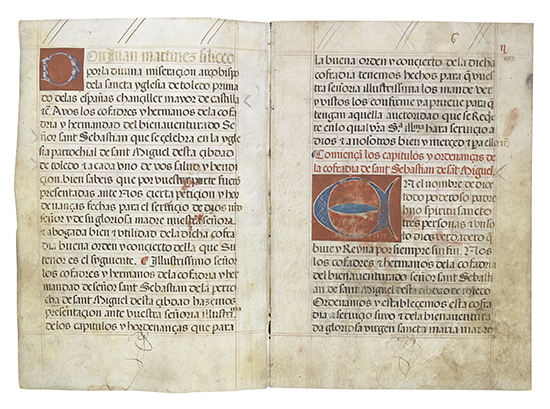 Don Juan martinez siliceo
por la diuina miseracion arcobispo
dela sancta yglesia de toledo prima
do delas españas chanciller mayor de castilla
A vos los cofadres y hermanos dela co
fradia y hermandad del bienauenturado Se
ñor sant Sebastian que se çelebra en la ygle
sia parrochial de sant Miguel desta çibdad
de toledo & a cada vno de vos salud y bendi
cion. bien sabeis que por vuestra parte fueron
presentadas ante Nos çierta petiçion y hor
denanças fechas para el serffiçio de dios nro
señor y de su gloriosa madre nuestra señora
& abogada bien & vtilidad de la dicha cofra
dia buena orden y conçierto della que Su
tenor es el siguiente. Illustrissimo señor
los cofadres y hermanos dela cofradia y her
mandad de señor sant Sebastian de la perro
chia de sant Miguel desta çibdad hazemos
presentaçion ante vuestra señoria illustrissima
de los capitulos y hordenanças que para
6
la buena orden y conçierto de la dicha
cofadria tenemos hechos para q̃ vues
tra señoria illustrissima los mande ver
y vistos los confirme ya prueue para q̃
tengan aquella auctoridad que se Requie
re en lo qual vr̃a Sa. Illma. hara seruiçio a
dios & a nosotros bien y merçed &
Comiença los capitulos y ordenanças de
la cofradia de sant Sebastian de sat Miguel.
En el nombre de dios
todo poderoso padre
hijo spiritu sancto
tres personas & vn so
lo dios verdadero q̃
biue y Reyna por siempre sin fin. Nos
los cofadres & hermanos dela cofadria
del bienauenturado señor sant Sebastian
de sant Miguel desta çibdad de toledo
Ordenamos y establecemos esta cofra
dia a seruiçio suyo & dela bienauentura
da gloriosa virgen sancta maria madre